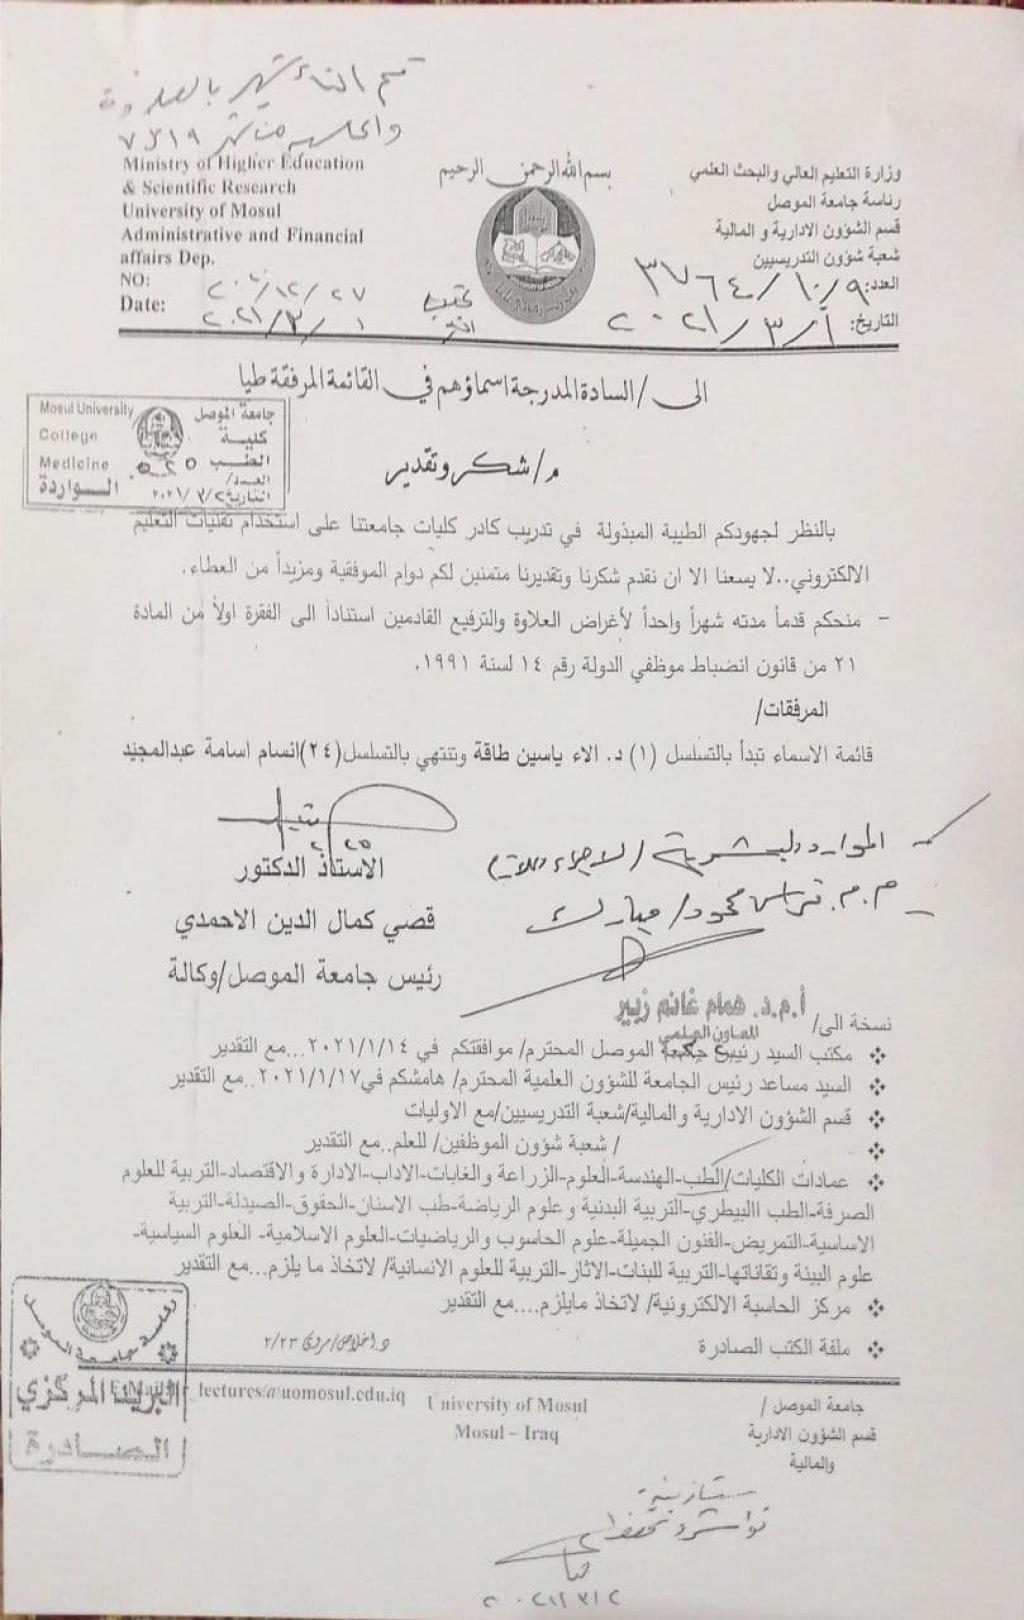 Ministry of Higher Education
& Scientific Research
University of Mosul
Administrative and Financial
affairs Dep.
NO:
Date:
٢٠٢٠/١٢/٢٧
٢٠٢١/٣/١
بسم الله الرحمن الرحيم
وزارة التعليم العالي والبحث العلمي
رئاسة جامعة الموصل
قسم الشؤون الادارية و المالية
شعبة شؤون التدريسيين
العدد: ٣٧٦٤/١٠/٩
التاريخ: ٢٠٢١/٣/١
الى / السادة المدرجة اسماؤهم في القائمة المرفقة طيا
Mosul University
College
Medicine
جامعة الموصل
كلية
الطب
العدد/ ٥٠٢٥
التاريخ ٢٠٢١/٣/٢
الـواردة
م/ شكر وتقدير
بالنظر لجهودكم الطيبة المبذولة في تدريب كادر كليات جامعتنا على استخدام تقنيات التعليم
الالكتروني..لا يسعنا الا ان نقدم شكرنا وتقديرنا متمنين لكم دوام الموفقية ومزيداً من العطاء.
- منحكم قدماً مدته شهراً واحداً لأغراض العلاوة والترفيع القادمين استناداً الى الفقرة اولاً من المادة
٢١ من قانون انضباط موظفي الدولة رقم ١٤ لسنة ١٩٩١.
المرفقات/
قائمة الاسماء تبدأ بالتسلسل (١) د. الاء ياسين طاقة وتنتهي بالتسلسل(٢٤)انسام اسامة عبدالمجيد
الاستاذ الدكتور
قصي كمال الدين الاحمدي
رئيس جامعة الموصل/وكالة
الموارد البشرية
أ.م.د. همام غانم زبير
المعاون العلمي
نسخة الى/
❖ مكتب السيد رئيس جامعة الموصل المحترم/ موافقتكم في ٢٠٢١/١/١٤...مع التقدير
❖ السيد مساعد رئيس الجامعة للشؤون العلمية المحترم/ هامشكم في٢٠٢١/١/١٧..مع التقدير
❖ قسم الشؤون الادارية والمالية/شعبة التدريسيين/مع الاوليات
❖ / شعبة شؤون الموظفين/ للعلم..مع التقدير
❖ عمادات الكليات/الطب-الهندسة-العلوم-الزراعة والغابات-الاداب-الادارة والاقتصاد-التربية للعلوم
الصرفة-الطب االبيطري-التربية البدنية وعلوم الرياضة-طب الاسنان-الحقوق-الصيدلة-التربية
الاساسية-التمريض-الفنون الجميلة-علوم الحاسوب والرياضيات-العلوم الاسلامية- العلوم السياسية-
علوم البيئة وتقاناتها-التربية للبنات-الاثار-التربية للعلوم الانسانية/ لاتخاذ ما يلزم...مع التقدير
❖ مركز الحاسبة الالكترونية/ لاتخاذ مايلزم....مع التقدير
❖ ملفة الكتب الصادرة
د.اخلاص/مروى ٢/٢٣
رئاسة جامعة الموصل
البريد المركزي
الصـادرة
lectures@uomosul.edu.iq
University of Mosul
Mosul – Iraq
جامعة الموصل /
قسم الشؤون الادارية
والمالية
٢٠٢١/٣/٢